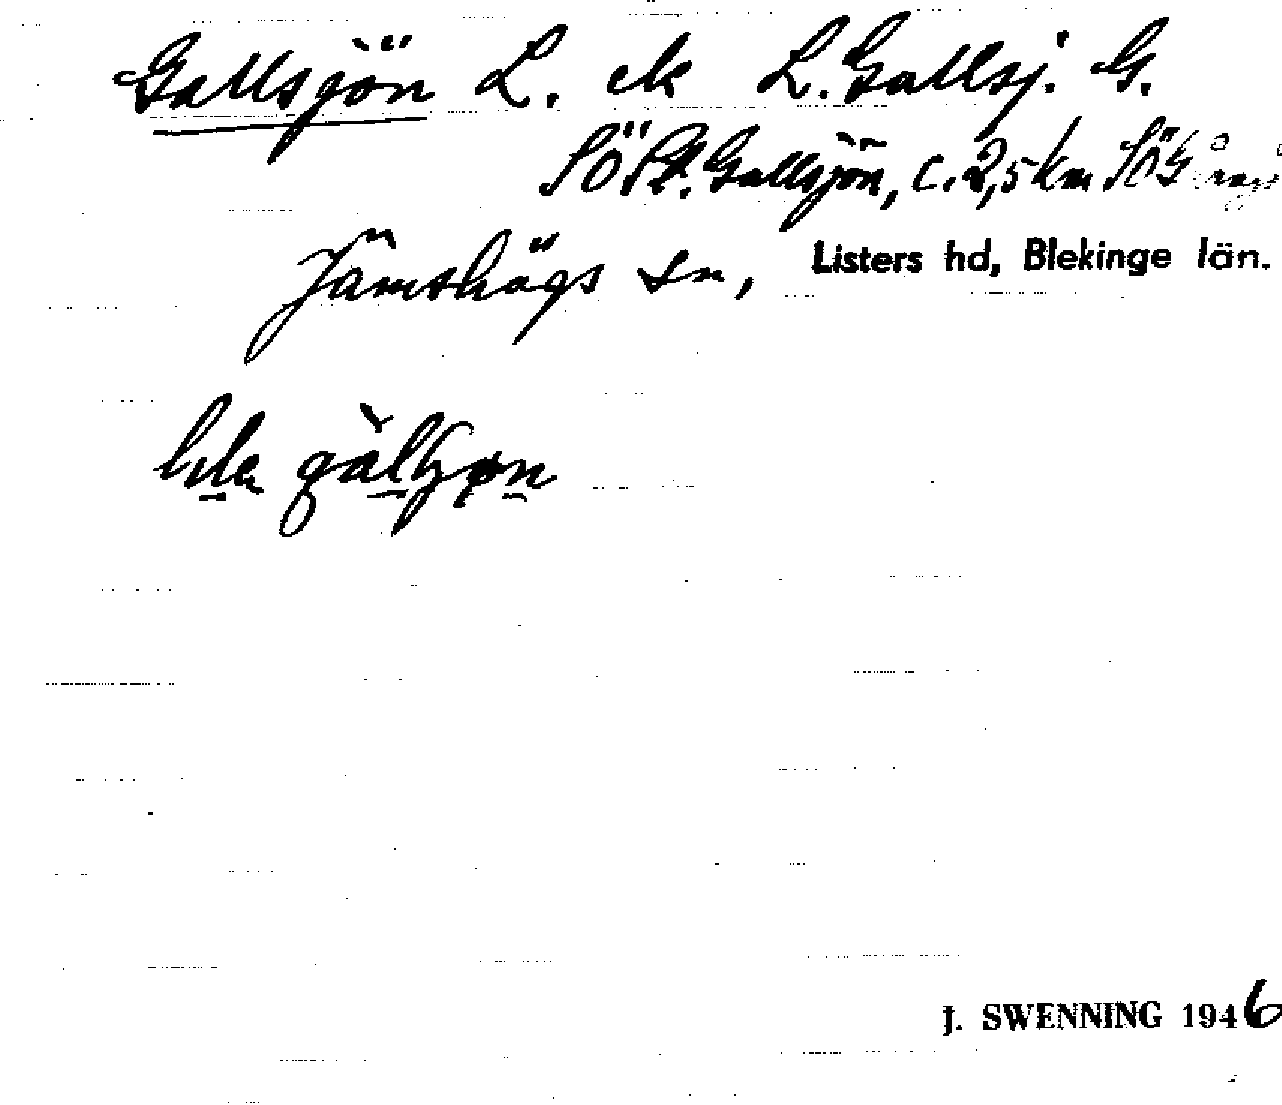 Gallsjön L. ek L. Gallsj. G.
SÖ St. Gallsjön, c. 2,5 km SÖ
Jämshögs sn, Listers hd, Blekinge län.
lela
J. SWENNING 1946